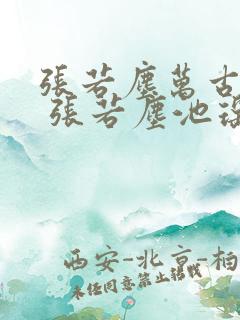 張若塵萬古
張若塵池
西安-北京-柏
未任同意禁止轉載